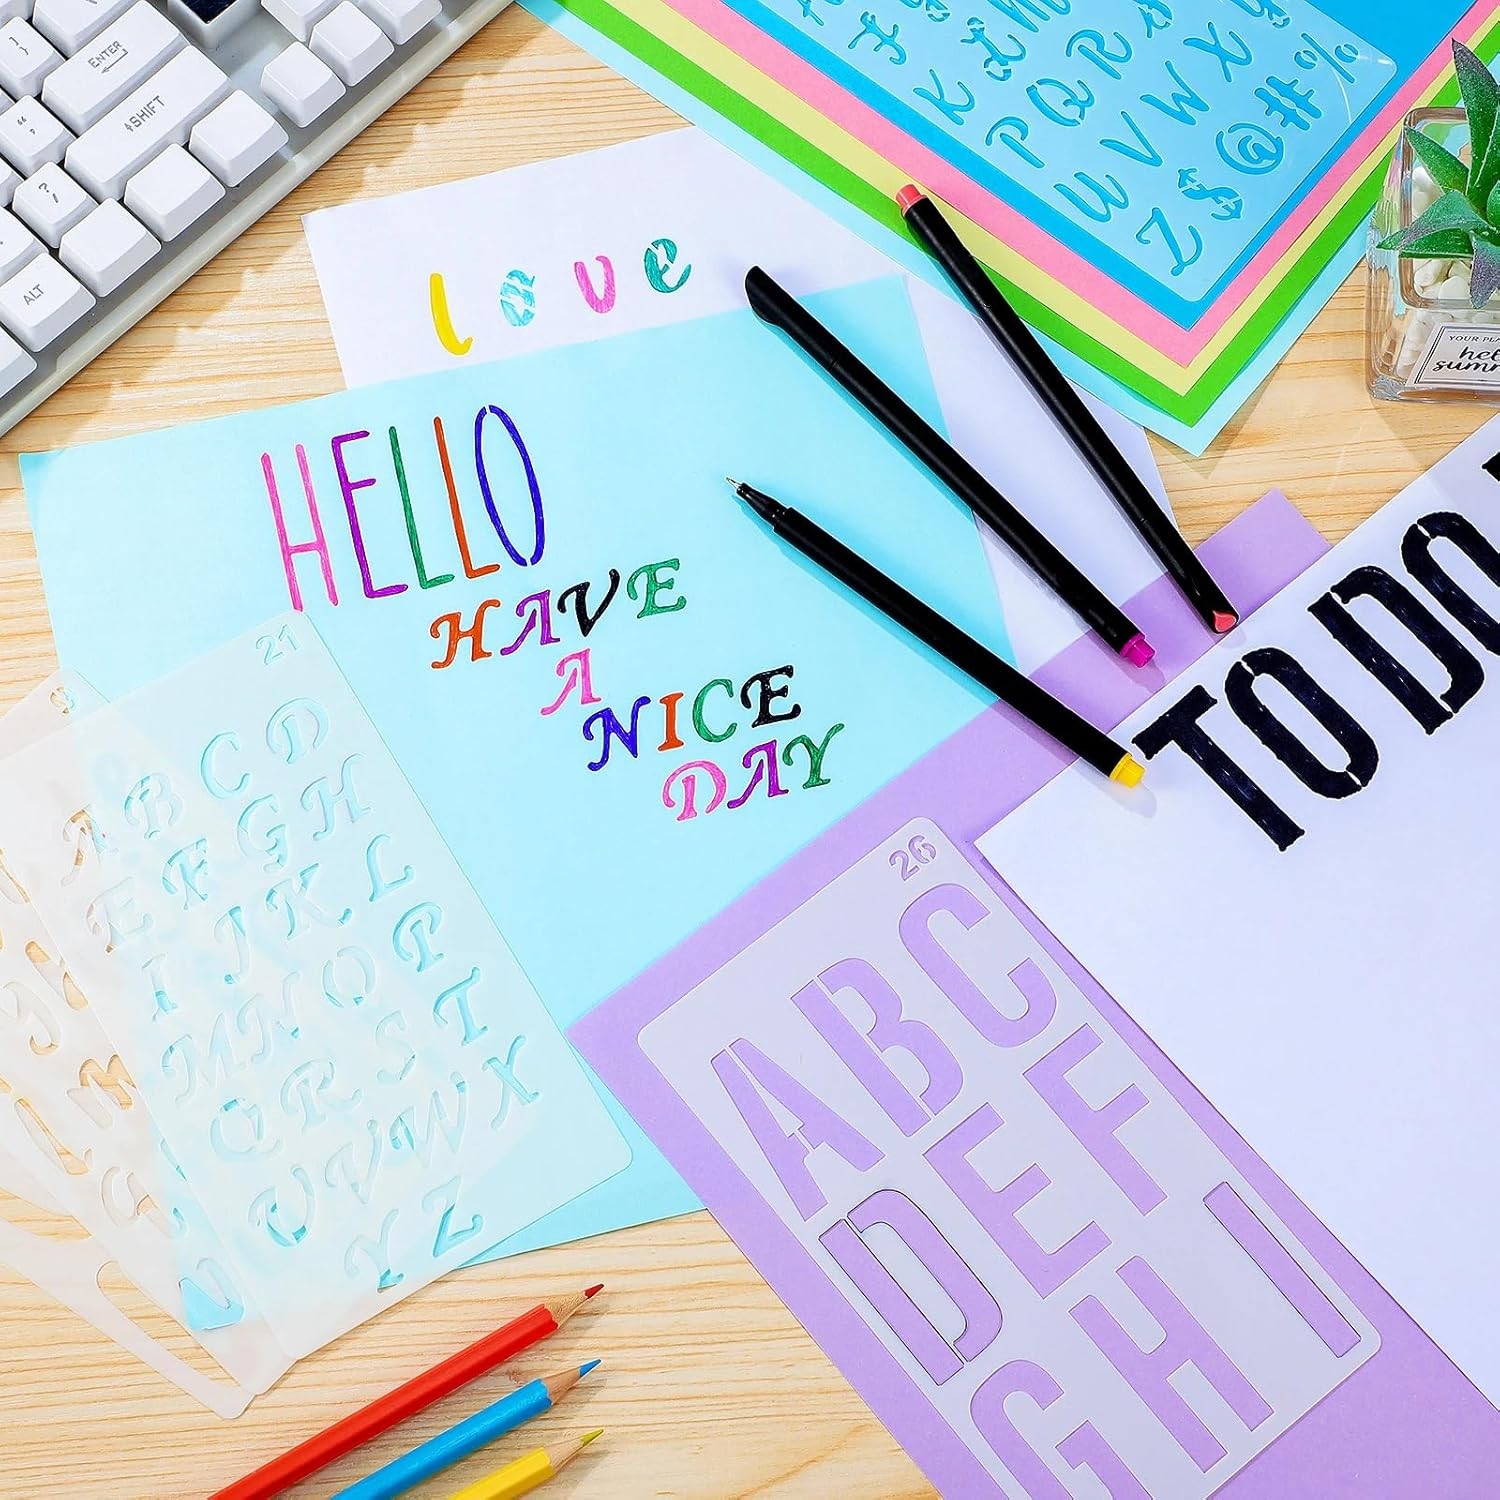 ENTER
SHIFT
?
ALT
K L M
P Q R
U V W X Y
Z $ @ # %
love
HELLO
HAVE
A
NICE
DAY
hel
summ
TO DO
21
A B C D
E F G H
I J K L
M N O P
Q R S T
U V W X
Y Z
26
A B C
D E F
G H I